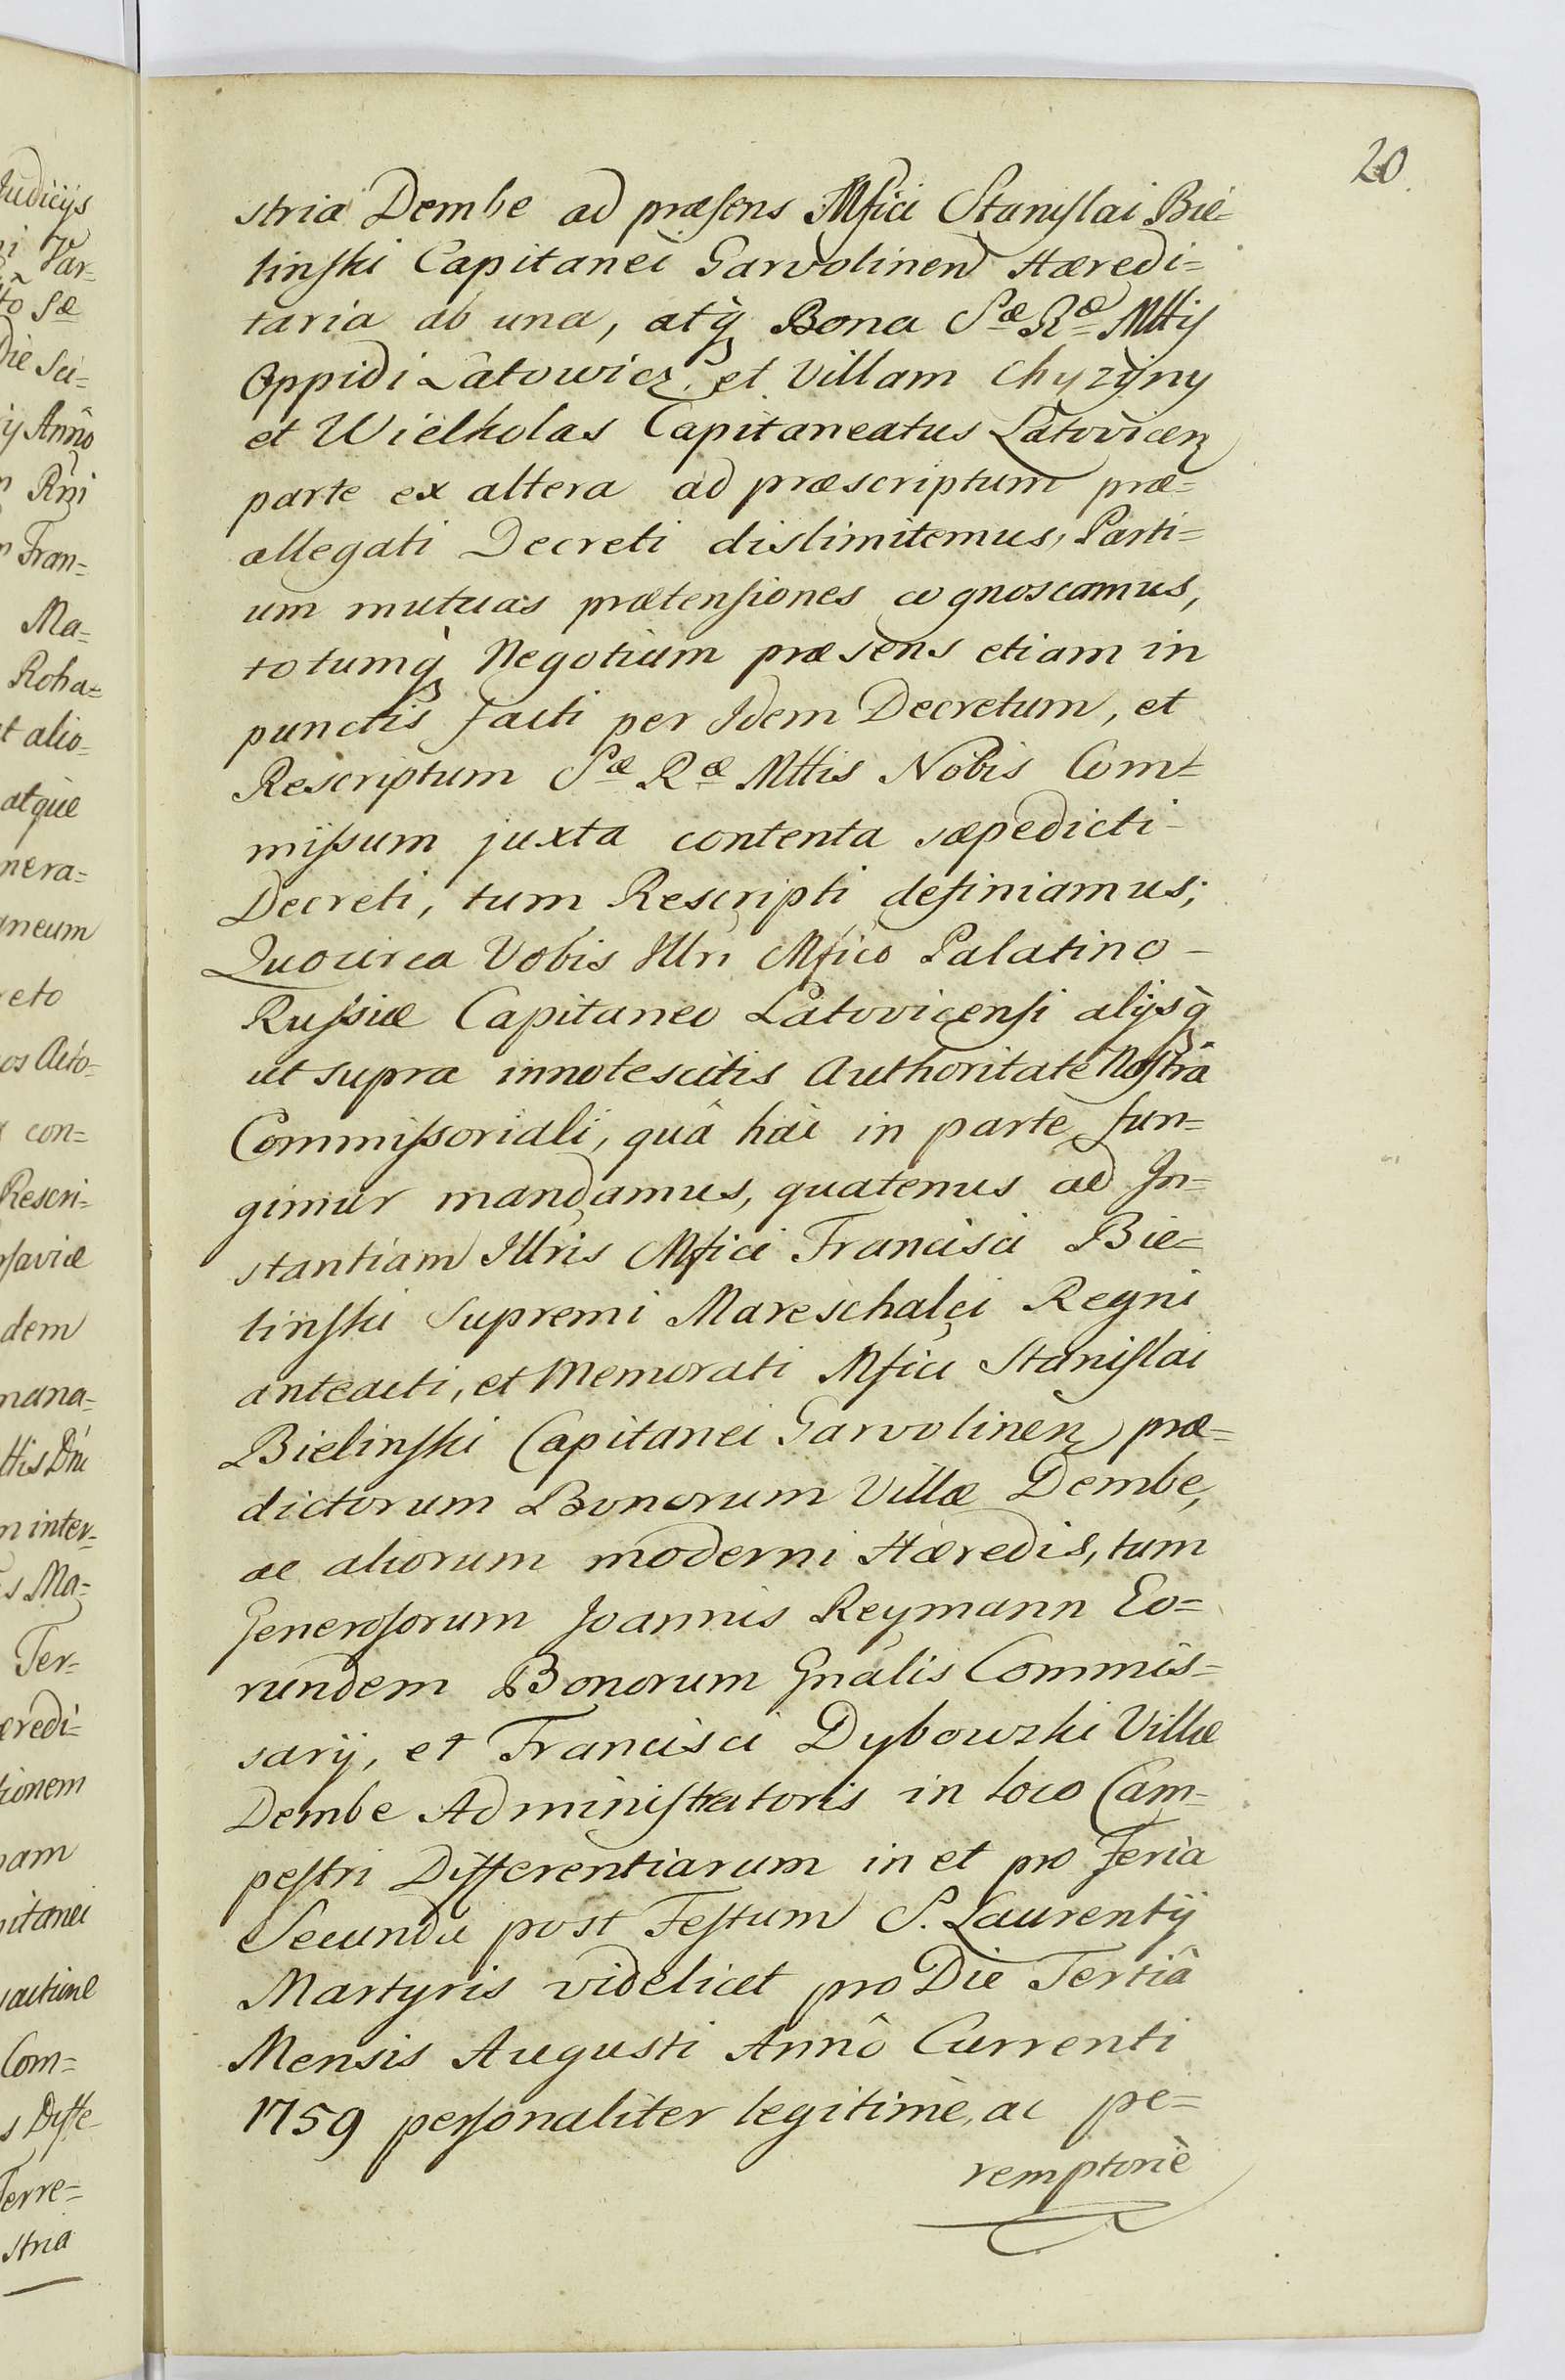 20.
stria Dembe ad præsens Mfici Stanislai Bie=
linski Capitanei Garvolinen Hæredi=
taria ab una, atq Bona Sæ Ræ Mttis
Oppidi Latowicz et Villam Chyzyny
et Wielholas Capitaneatus Latovicen
parte ex altera ad præscriptum præ=
allegati Decreti dislimitemus, Parti=
um mutuas prætensiones cognoscamus,
totumq Negotium præsens etiam in
punctis facti per Idem Decretum, et
Rescriptum Sæ Ræ Mttis Nobis Com=
missum juxta contenta sæpedicti
Decreti, tum Rescripti definiamus;
Quocirca Vobis Illri Mfico Palatino
Russiæ Capitaneo Latovicensi alijsq
ut supra innotescitis Authoritate Nostrâ
Commissoriali, quâ hâc in parte fun=
gimur mandamus, quatenus ad In=
stantiam Illris Mfici Francisci Bie=
linski Supremi Mareschalci Regni
anteacti, et Memorati Mfici Stanislai
Bielinski Capitanei Garvolinen præ=
dictorum Bonorum Villæ Dembe,
ac aliorum moderni Hæredis, tum
Generosorum Joannis Reymann Eo=
rundem Bonorum Gnâlis Commis=
sarij, et Francisci Dybowski Villæ
Dembe Administratoris in loco Cam=
pestri Differentiarum in et pro Feria
Secunda post Festum S. Laurentij
Martyris videlicet pro Die Tertiâ
Mensis Augusti Annô Currenti
1759 personaliter legitimè, ac pe=
remptoriè